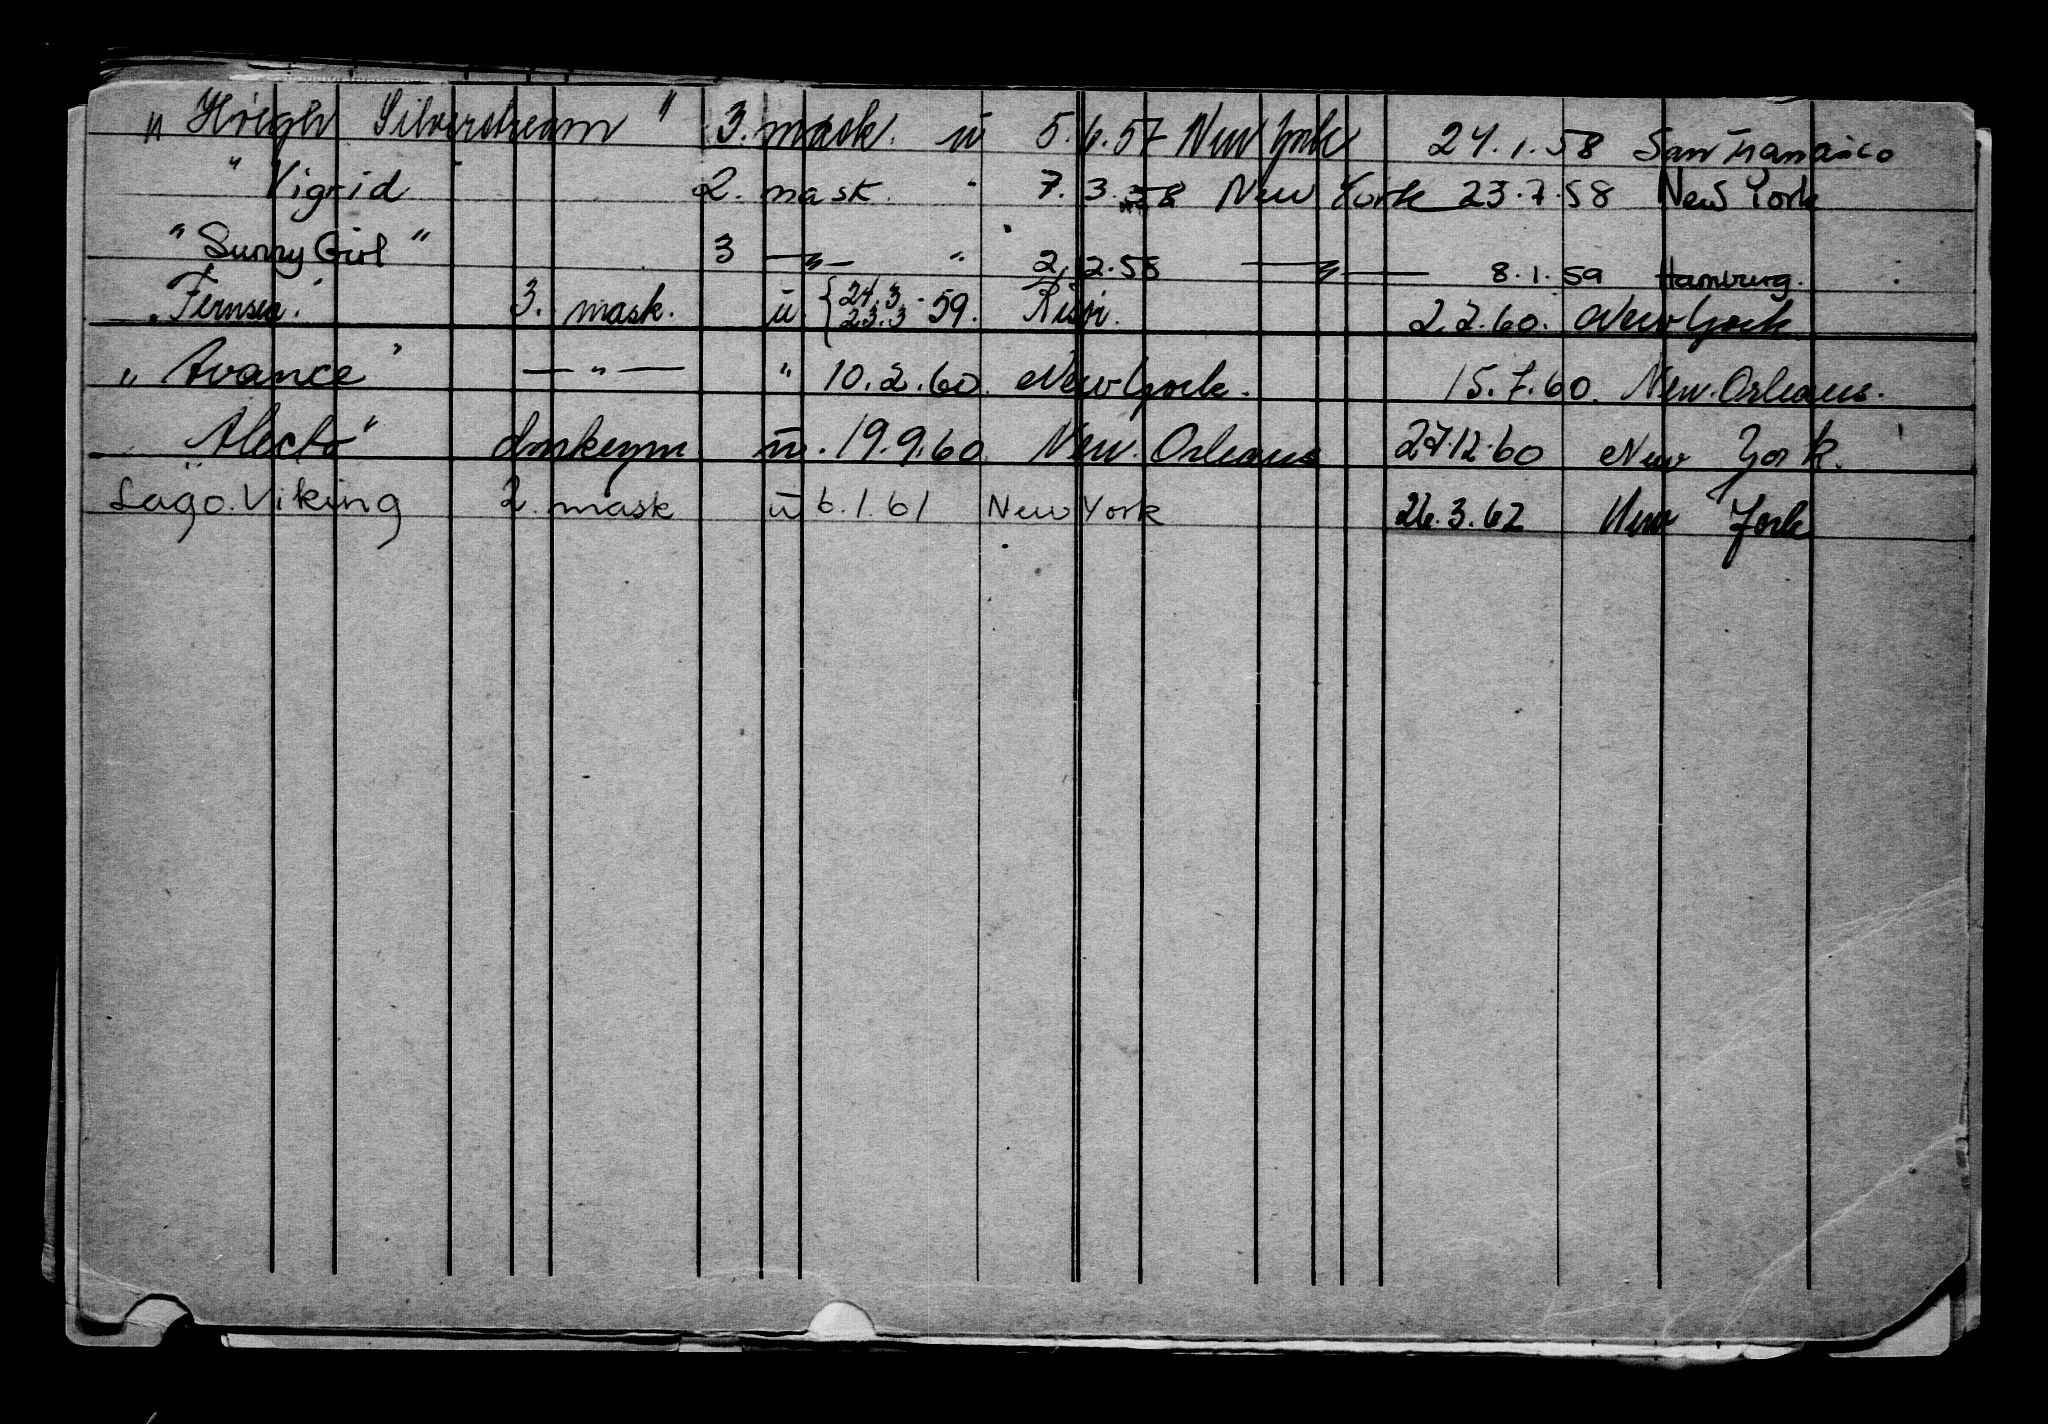 „ Höegh Silverstream " 3. mask. u 5.6.57 New York 24.1.58 San Fransisco
" Vigrid 2. mask. " 7.3.58 New York 23.7.58 New York
" Sunny Girl " 3 —"— " 2.12.58 —"— 8.1.59 Hamburg.
„ Fernsea. " 3. mask. u. { 24.3 23.3 .59. 2.2.60. New York
„ Avance " —"— " 10.2.60. New York. 15.7.60. New. Orleans.
„ Alecto " donkeym u. 19.9.60 New. Orleans 27.12.60 New York.
Lago. Viking 2. mask u 6.1.61 New York 26.3.62 New York